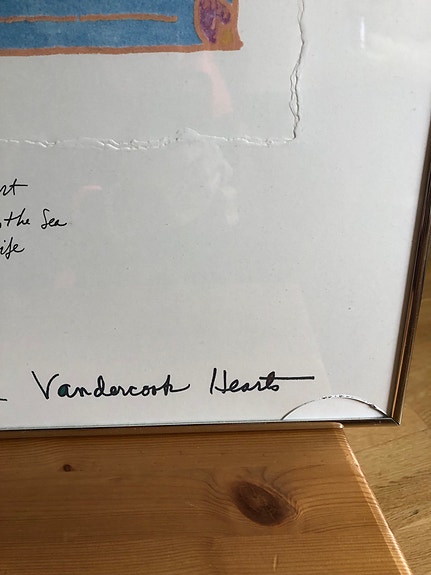 the Sea
Vandercook Hearts